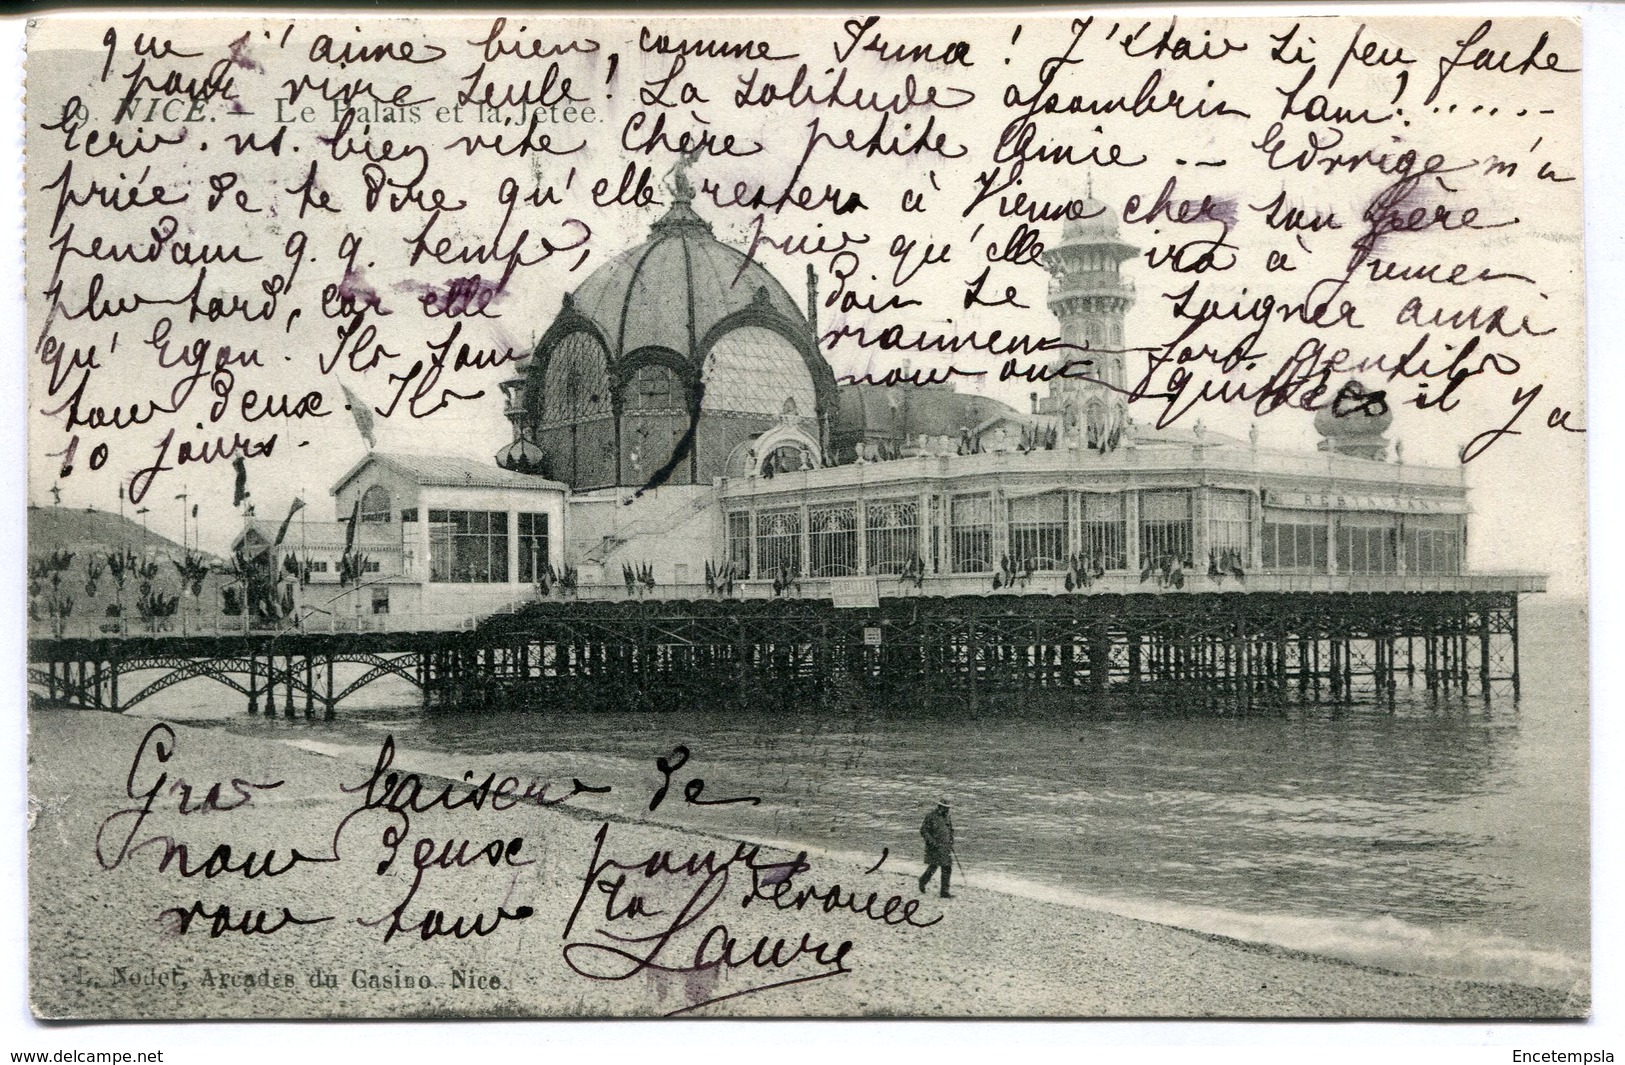 que j'aime bien, comme Irma ! J'étais si peu faite
pour vivre seule ! La solitude assombrit tant ! .....
9. NICE. — Le Palais et la Jetée.
Ecris. ns. bien vite Chère petite Amie -- Edwige m'a
priée de te dire qu'elle restera à Vienne chez son frère
pendant q. q. temps, puis qu'elle ira à
plus tard, car elle doit se soigner ainsi
qu'Egon. Ils sont vraiment fort gentils
tous deux. Ils nous ont quittés il y a
10 jours.
RESTAURANT
Gros baisers de
nous deux pour
vous tous
Ta dévouée
Laure
L. Nodet, Arcades du Casino. Nice.
delcampe.net
Encetempsla